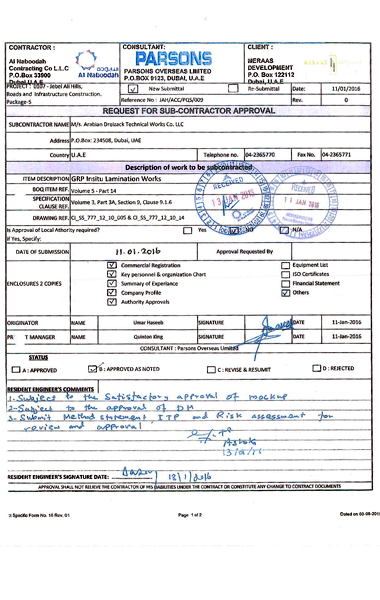 CONTRACTOR : CONSULTANT: CLIENT :
Al Naboodah
Contracting Co L.L.C
P.O.Box 33900
Dubai U.A.E
Al Naboodah
PARSONS
PARSONS OVERSEAS LIMITED
P.O BOX 9123, DUBAI, U.A.E
MERAAS
DEVELOPMENT
P.O. Box 122112
Dubai, U.A.E
PROJECT : 0107 - Jebel Ali Hills,
Roads and Infrastructure Construction,
Package-5
New Submittal Re-Submittal Date: 11/01/2016
Reference No : JAH/ACC/PQS/009 Rev. 0
REQUEST FOR SUB-CONTRACTOR APPROVAL
SUBCONTRACTOR NAME M/s. Arabian Dreisack Technical Works Co. LLC
Address P.O.Box: 234508, Dubai, UAE
Country U.A.E Telephone no. 04-2365770 Fax No. 04-2365771
Description of work to be subcontracted
ITEM DESCRIPTION GRP Insitu Lamination Works
BOQ ITEM REF. Volume 5 - Part 14
SPECIFICATION
CLAUSE REF.
Volume 3, Part 3A, Section 9, Clause 9.1.6
DRAWING REF. CI_S5_777_12_10_005 & CI_S5_777_12_10_14
RECEIVED
13 JAN 2016
RECEIVED
11 JAN 2016
Is Approval of Local Athority required? Yes NO N/A
If Yes, Specify:
DATE OF SUBMISSION 11.01.2016 Approval Requested By
ENCLOSURES 2 COPIES
Commercial Registration Equipment List
Key personnel & organization Chart ISO Certificates
Summary of Experiance Financial Statement
Company Profile Others
Authority Approvals
ORIGINATOR NAME Umar Haseeb SIGNATURE DATE 11-Jan-2016
PR T MANAGER NAME Quinton King SIGNATURE DATE 11-Jan-2016
CONSULTANT : Parsons Overseas Limited
STATUS
A : APPROVED B : APPROVED AS NOTED C : REVISE & RESUMIT D : REJECTED
RESIDENT ENGINEER'S COMMENTS
1- Subject to the Satisfactory approval of mockup
2- Subject to the approval of DM
3- Submit Method statement ITP and Risk assessment for
review and approval
RESIDENT ENGINEER'S SIGNATURE DATE: 12/1/2016
APPROVAL SHALL NOT RELIEVE THE CONTRACTOR OF HIS LIABILITIES UNDER THE CONTRACT OR CONSTITUTE ANY CHANGE TO CONTRACT DOCUMENTS
Specific Form No. 16 Rev. 01 Page 1 of 2